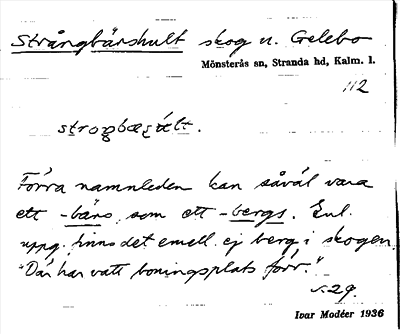 Strångbärshult skog u. Gelebo
Mönsterås sn, Stranda hd, Kalm. l.
112
Förra namnleden kan såväl vara
ett -bärs som ett -bergs. Enl.
uppg. finns det emell. ej berg i skogen.
"Där har vatt boningsplats förr."
s. 29.
Ivar Modéer 1936